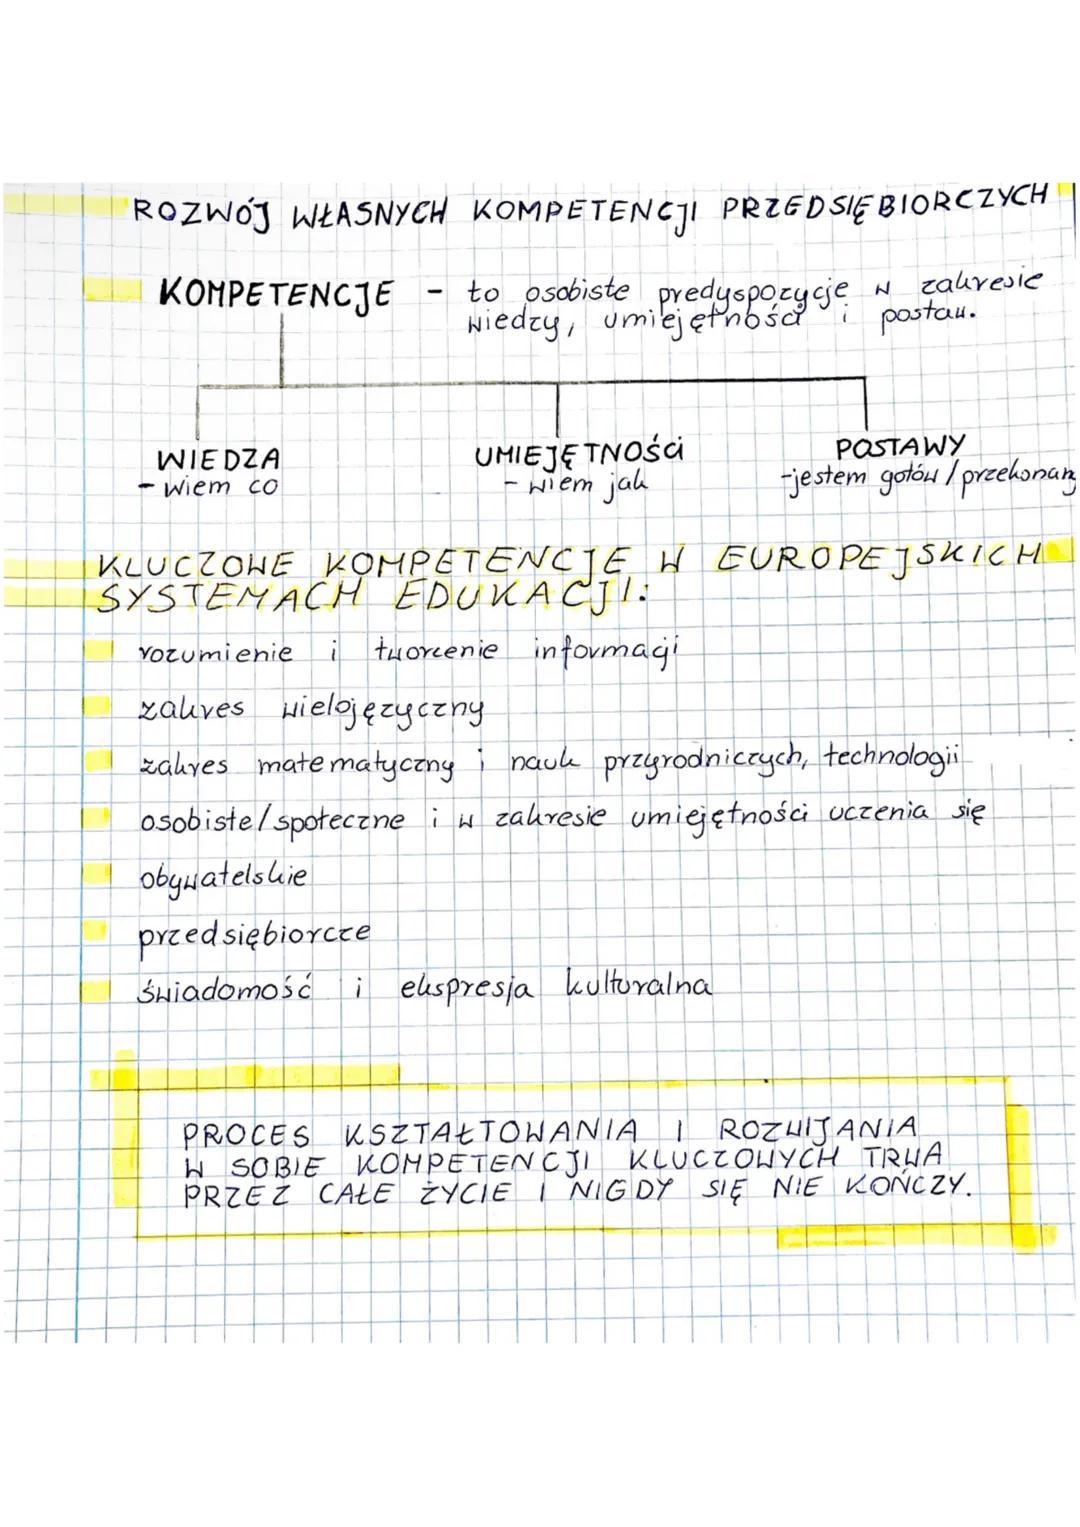 ROZWÓJ WŁASNYCH KOMPETENCJI PRZEDSIĘBIORCZYCH
KOMPETENCJE - to osobiste predyspozycje w zakresie
wiedzy, umiejętności i postaw.
WIEDZA
- wiem co
UMIEJĘTNOŚCi
- wiem jak
POSTAWY
-jestem gotów/przekonany
KLUCZOWE KOMPETENCJE W EUROPEJSKICH
SYSTEMACH EDUKACJI:
rozumienie i tworzenie informacji
zakres wielojęzyczny
zakres matematyczny i nauk przyrodniczych, technologii
osobiste/społeczne i w zakresie umiejętności uczenia się
obywatelskie
przedsiębiorcze
świadomość i ekspresja kulturalna
PROCES KSZTAŁTOWANIA I ROZWIJANIA
W SOBIE KOMPETENCJI KLUCZOWYCH TRWA
PRZEZ CAŁE ŻYCIE I NIGDY SIĘ NIE KOŃCZY.